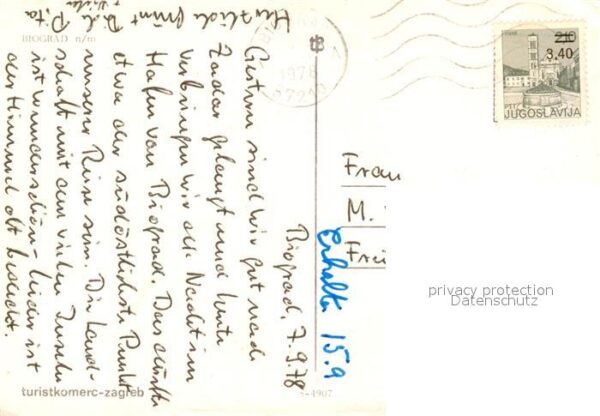 BIOGRAD n/m
Biograd, 7.9.78
Gestern sind wir gut nach
Zadar gelangt und heute
verbringen wir die Nacht im
Hafen von Biograd. Das dürfte
etwa der südöstlichste Punkt
unserer Reise sein. Die Land-
schaft mit den vielen Inseln
ist wunderschön - leider ist
der Himmel oft bedeckt.
Herzliche Grüsst Dich
Erhalten 15.9
Frau
M.
Frei
1978
2.10
3.40
JUGOSLAVIJA
privacy protection
Datenschutz
turistkomerc-zagreb
-4907